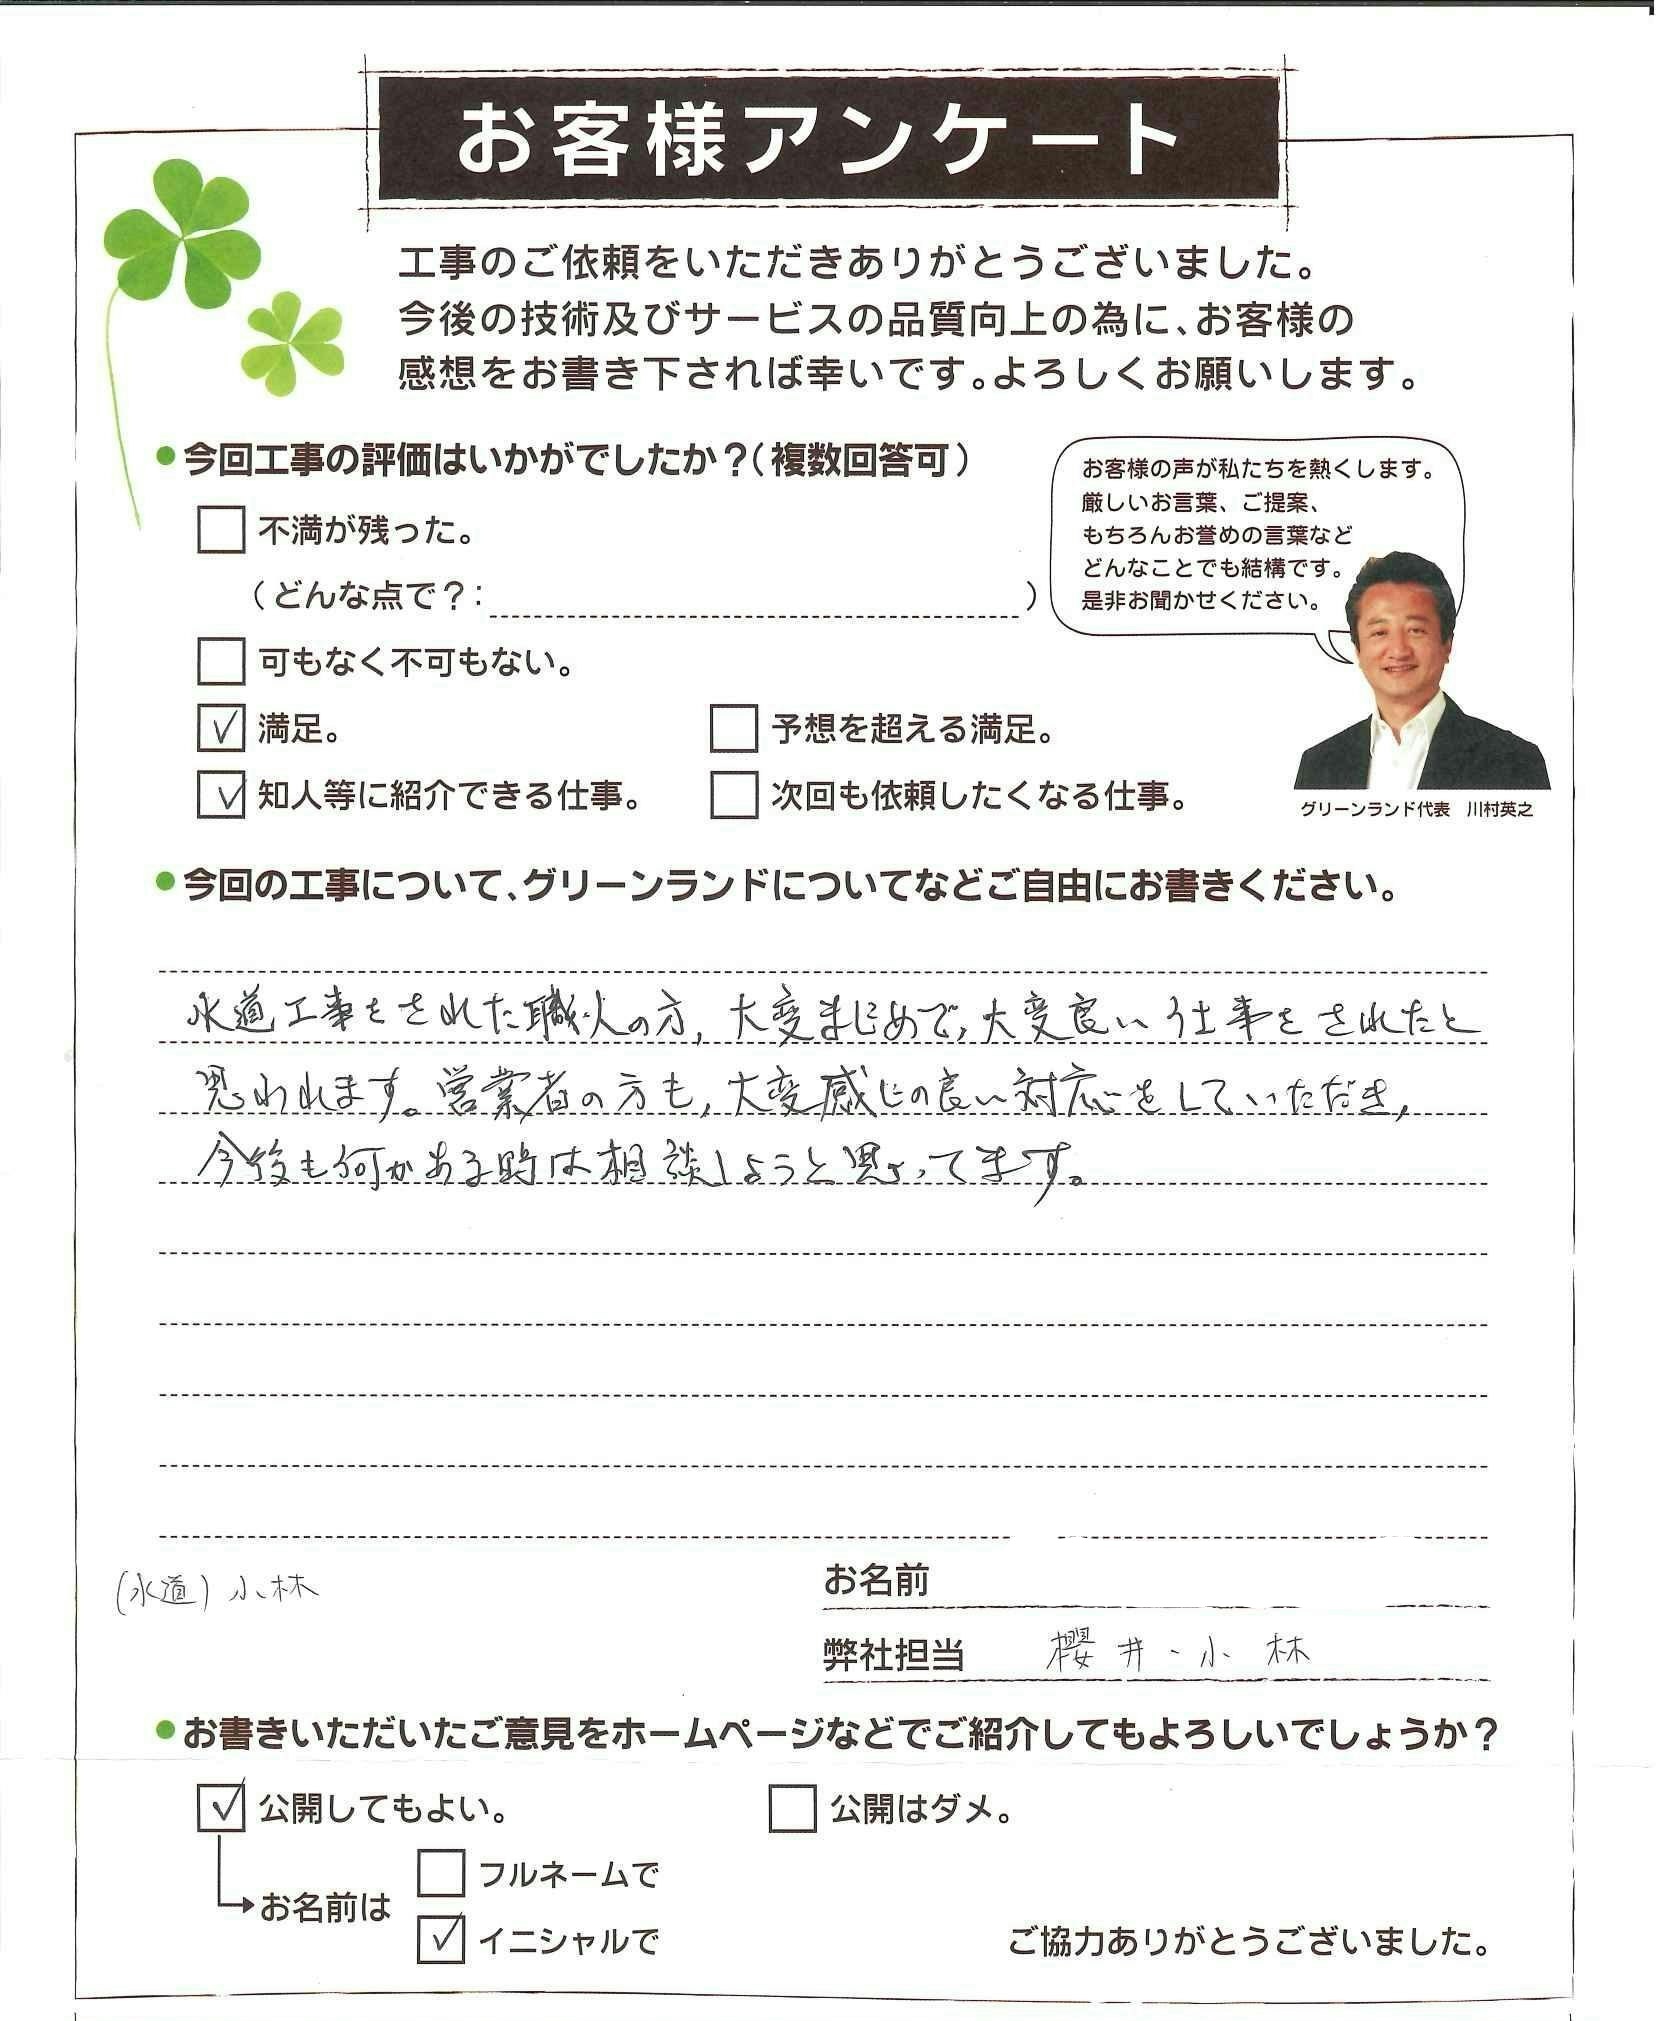 お客様アンケート
工事のご依頼をいただきありがとうございました。
今後の技術及びサービスの品質向上の為に、お客様の
感想をお書き下されば幸いです。よろしくお願いします。
●今回工事の評価はいかがでしたか？（複数回答可）
お客様の声が私たちを熱くします。
厳しいお言葉、ご提案、
もちろんお誉めの言葉など
どんなことでも結構です。
是非お聞かせください。
不満が残った。
（どんな点で？：　）
可もなく不可もない。
満足。
予想を超える満足。
知人等に紹介できる仕事。
次回も依頼したくなる仕事。
グリーンランド代表　川村英之
●今回の工事について、グリーンランドについてなどご自由にお書きください。
水道工事をされた職人の方，大変まじめで，大変良い仕事をされたと
思われます。営業者の方も，大変感じの良い対応をしていただき，
今後も何かある時は相談しようと思ってます。
(水道) 小林
お名前
弊社担当　櫻井・小林
●お書きいただいたご意見をホームページなどでご紹介してもよろしいでしょうか？
公開してもよい。
公開はダメ。
お名前は
フルネームで
イニシャルで
ご協力ありがとうございました。